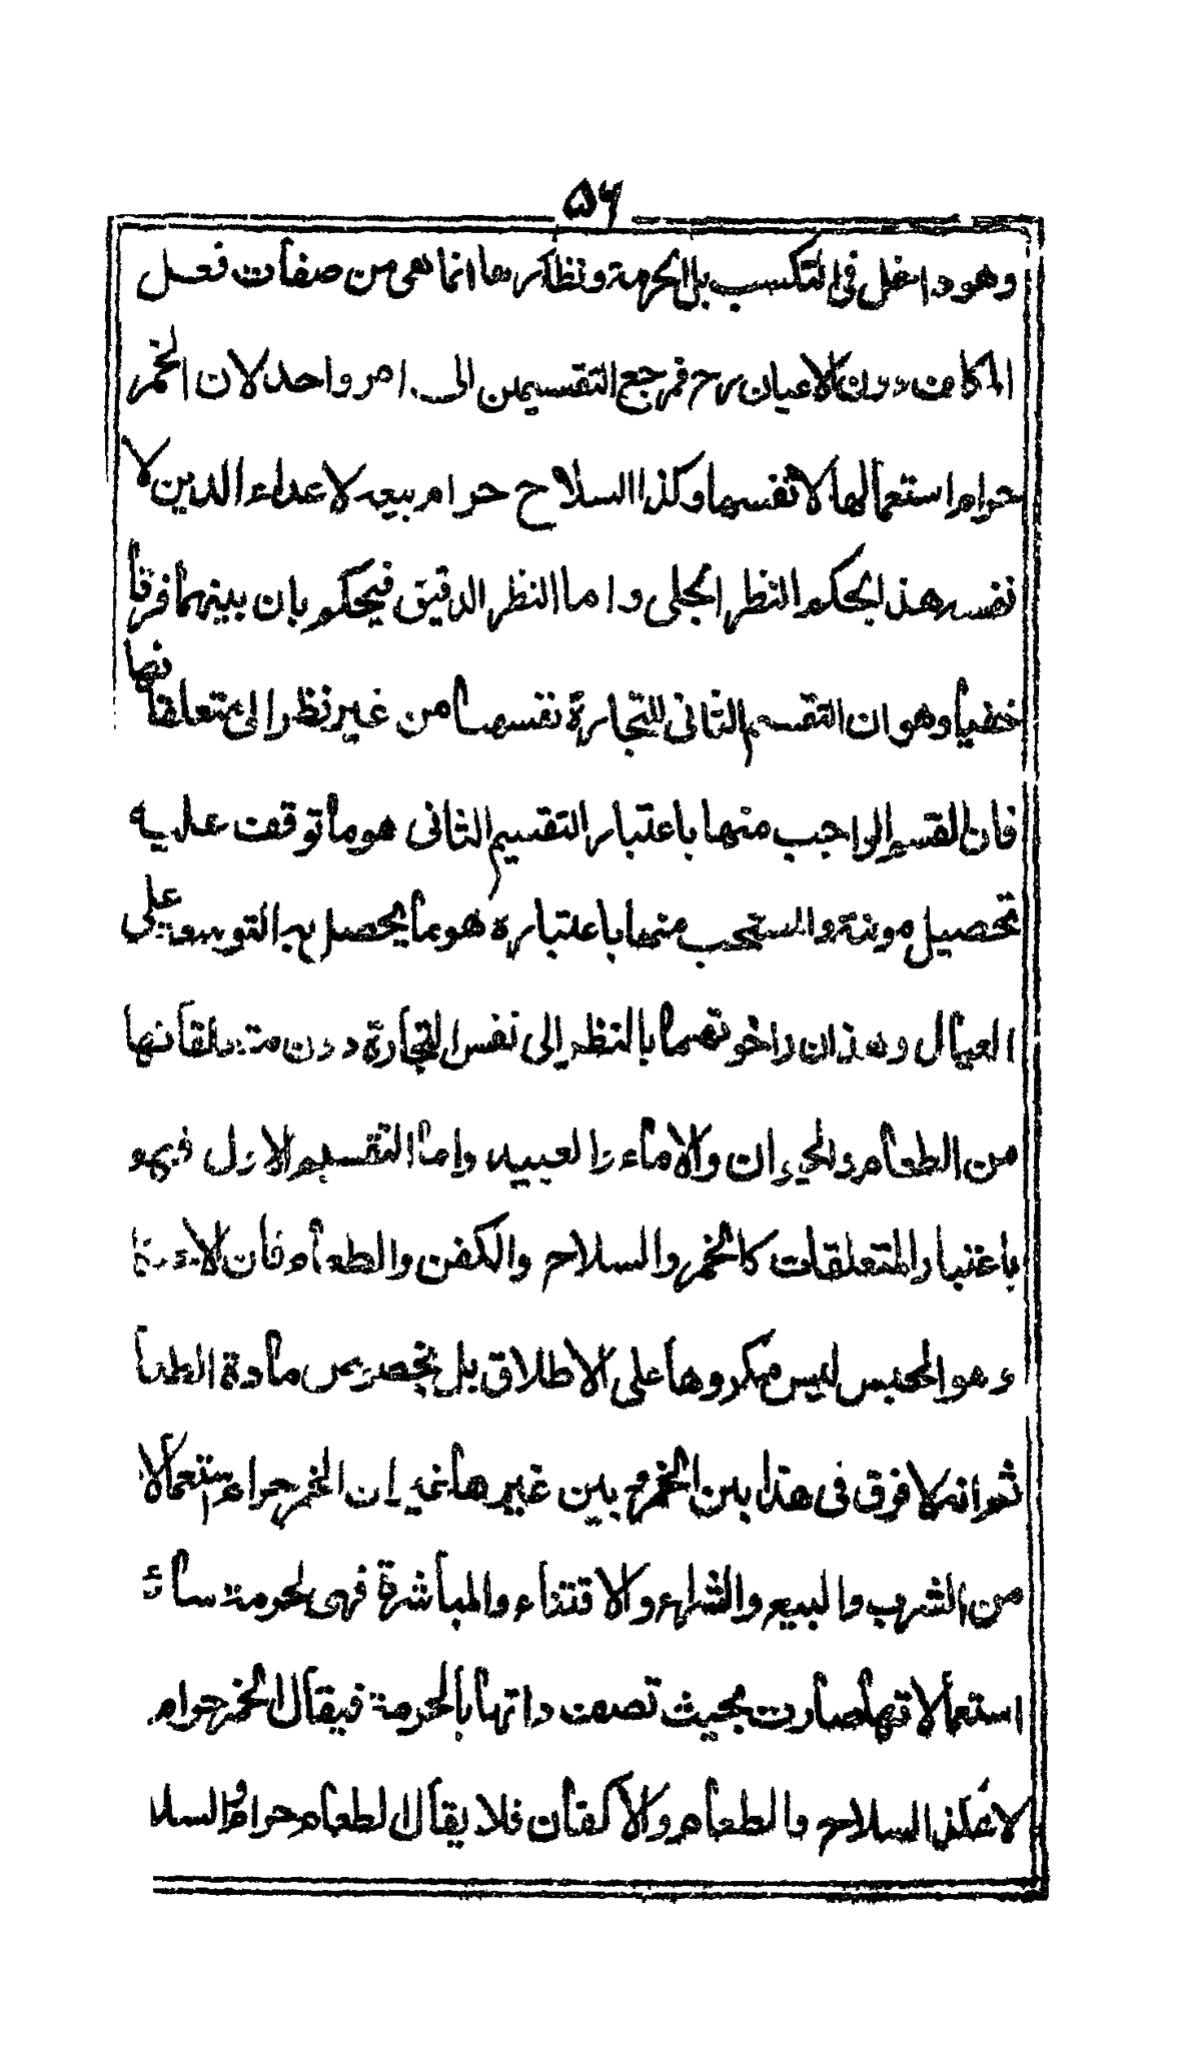 ۵۶
وهو داخل فى التكسب بل الحرمة ونظائرها انما هى من صفات فعل
المكلف دون الاعيان رح فمرجع التقسيمين الى امر واحد لان الخمر
حرام استعمالها لا نفسها وكذا السلاح حرام بيعه لاعداء الدين لا
نفسه هذا يحكم النظر الجلى واما النظر الدقيق فيحكم بان بينهما فرقا
خفيا وهو ان التقسيم الثانى للتجارة نفسها من غير نظر الى متعلقاتها
فان القسم الواجب منها باعتبار التقسيم الثانى هو ما توقف عليه
تحصيل مونته والمستحب منها باعتباره هو ما يحصل به التوسعه على
العيال وهذان واخوتهما بالنظر الى نفس التجارة دون متعلقاتها
من الطعام والحيوان والاماء والعبيد واما التقسيم الاول فيهو
باعتبار المتعلقات كالخمر والسلاح والكفن والطعام فان
وهو الحبس ليس مكروها على الاطلاق بل بخصوص مادة الطعا
ثم انه لا فرق فى هذا بين الخمر وبين غيرها غير ان الخمر حرام استعمالا
من الشرب والبيع والشراء والاقتناء والمباشرة فهى لحرمة سائر
استعمالاتها صارت بحيث تصف ذاتها بالحرمة فيقال الخمر حرام
لا كذا السلاح والطعام والاكفان فلا يقال الطعام حرام والسلا